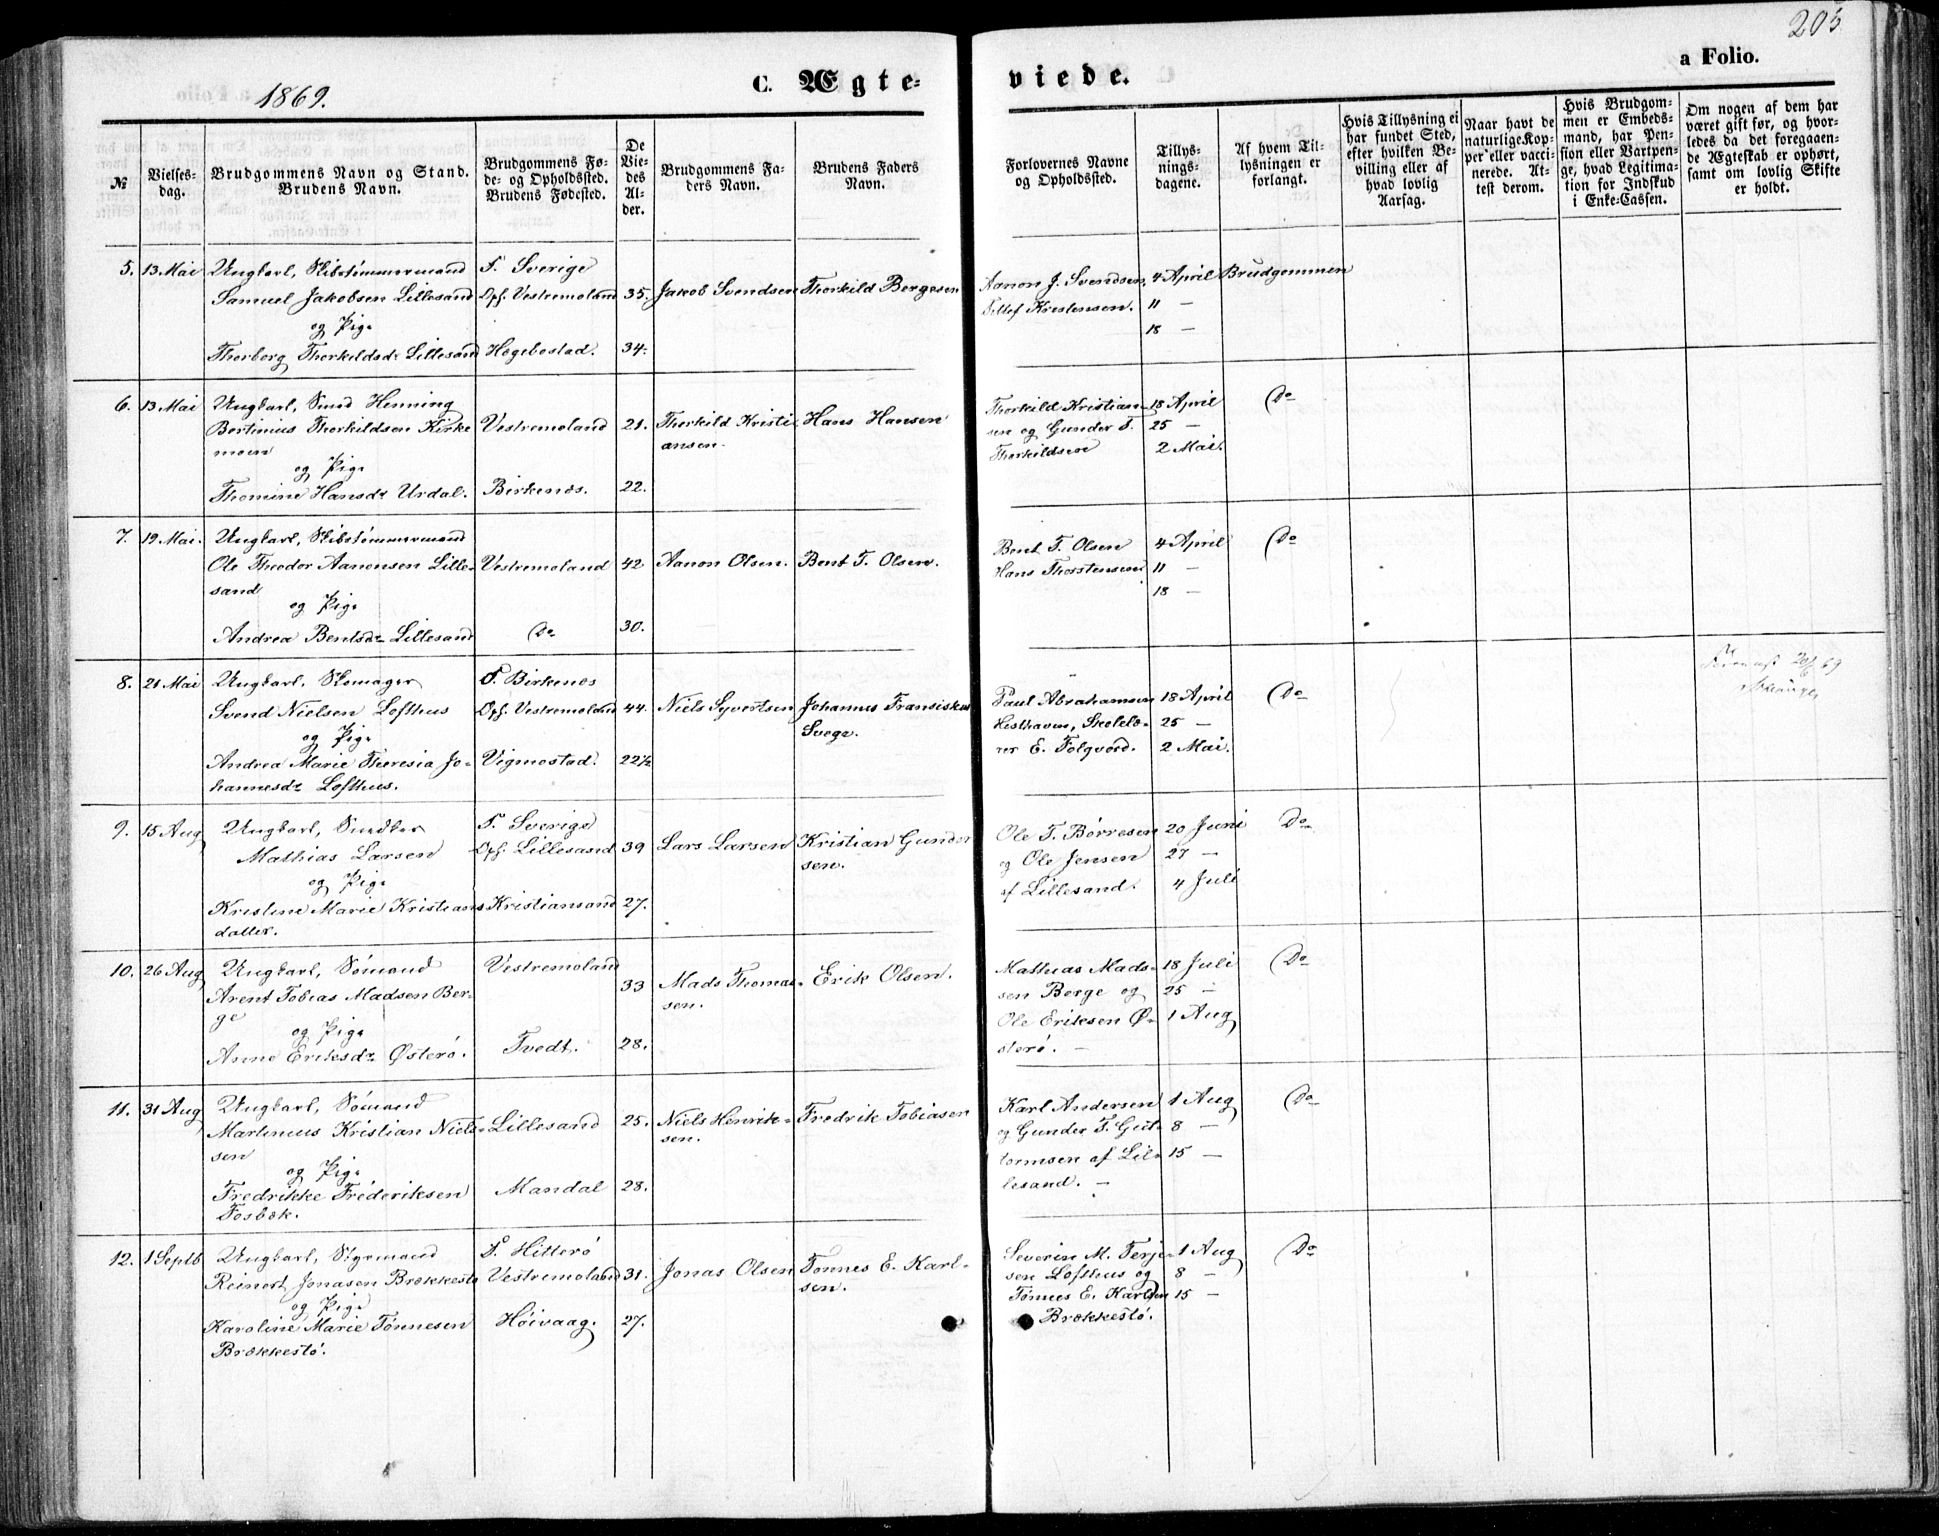 203
a Folio.
1869.
C. Ægte-
viede.
№
Vielses-
dag.
Brudgommens Navn og Stand.
Brudens Navn.
Brudgommens Fø-
de- og Opholdssted.
Brudens Fødested.
De
Vie-
des
Al-
der.
Brudgommens Fa-
ders Navn.
Brudens Faders
Navn.
Forlovernes Navne
og Opholdssted.
Tillys-
nings-
dagene.
Af hvem Til-
lysningen er
forlangt.
Hvis Tillysning ei
har fundet Sted,
efter hvilken Be-
villing eller af
hvad lovlig
Aarsag.
Naar havt de
naturlige Kop-
per eller vacci-
nerede. At-
test derom.
Hvis Brudgom-
men er Embeds-
mand, har Pen-
sion eller Vartpen-
ge, hvad Legitima-
tion for Indskud
i Enke-Cassen.
Om nogen af dem har
været gift før, og hvor-
ledes da det foregaaen-
de Ægteskab er ophørt,
samt om lovlig Skifte
er holdt.
5. 13 Mai Ungkarl, Skibstømmermand F. Sverige
Samuel Jakobsen Lillesand Oph. Vestremoland 35. Jakob Svendsen Thorkild Bergesen
og Pige
Thorborg Thorkildsdr Lillesand Hegebostad. 34.
Aanon J. Svendsen, 4 April Brudgommen
Ditlef Kristensen. 11 —
18 —
6. 13 Mai Ungkarl, Smed Henning
Bertinius Thorkildsen Kirke Vestremoland 21. Thorkild Kristi- Hans Hansen
moen ansen.
og Pige
Thomine Hansdr Urdal. Birkenes. 22.
Thorkild Kristian- 18 April Do
sen og Gunder T. 25 —
Thorkildsen 2 Mai.
7. 19 Mai. Ungkarl, Skibstømmermand
Ole Theodor Aanonsen Lille- Vestremoland 42 Aanon Olsen. Bent T. Olsen.
sand
og Pige
Andrea Bentsdr Lillesand Do 30.
Bent T. Olsen 4 April Do
Hans Thorstensen 11 —
18 —
8. 21 Mai Ungkarl, Skomager F. Birkenes
Svend Nielsen Lofthus Oph. Vestremoland 44. Niels Syvertsen Johannes Fransiskus
og Pige Svege.
Andrea Marie Theresia Jo- Vigmostad. 22½
hannesdr Lofthus.
Paul Abrahamsen 18 April Do
Hesthaven, Skolelæ- 25 —
rer E. Følgvord. 2 Mai.
9. 15 Aug Ungkarl, Snedker F. Sverige
Mathias Larsen Oph. Lillesand 39 Lars Larsen Kristian Gunder
og Pige sen.
Kristine Marie Kristians Kristiansand 27.
datter.
Ole T. Børresen 20 Juni Do
og Ole Jensen 27 —
af Lillesand. 4 Juli
10. 26 Aug Ungkarl, Sømand Vestremoland
Arent Tobias Madsen Ber- 33 Mads Thomas- Erik Olsen.
ge sen.
og Pige
Anne Eriksdr Østerø. Tvedt. 28.
Mathias Mads- 18 Juli Do
sen Berge og 25 —
Ole Eriksen Ø- 1 Aug
sterø. —
11. 31 Aug Ungkarl, Sømand
Martinius Kristian Niel- Lillesand 25. Niels Henrik- Fredrik Tobiasen
sen sen.
og Pige
Fredrikke Fréderiksen Mandal 28.
Fosbæk.
Karl Andersen 1 Aug Do
og Gunder T. Gut- 8 —
tormsen af Lil- 15 —
lesand. —
12. 1 Septb Ungkarl, Styrmand F. Hitterø
Reinert Jonasen Brækkestø Vestremoland 31. Jonas Olsen Tønnes E. Karl-
og Pige sen.
Karoline Marie Tønnesen Høivaag. 27.
Brækkestø.
Severin M. Terje- 1 Aug Do
sen Lofthus og 8 —
Tønnes E. Karlsen 15 —
Brækkestø.